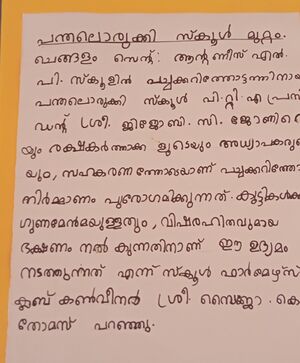 പന്തലൊരുക്കി സ്കൂൾ മുറ്റം.
ചെങ്ങളം സെന്റ്: ആന്റണീസ് എൽ.
പി. സ്കൂളിൽ പച്ചക്കറിത്തോട്ടത്തിനായ
പന്തലൊരുക്കി സ്കൂൾ പി.റ്റി.എ പ്രസി
ഡന്റ് ശ്രീ. ജിജോബി. സി. ജോണിന്റെ
യും രക്ഷകർത്താക്ക ളുടെയും അധ്യാപകരുടെ
യും, സഹകരണ ത്തോടെയാണ് പച്ചക്കറിത്തോ
നിർമ്മാണം പുരോഗമിക്കുന്നത്. കുട്ടികൾക്ക്
ഗുണമേൻമയുള്ളതും, വിഷരഹിതവുമായ
ഭക്ഷണം നൽ കുന്നതിനാണ് ഈ ഉദ്യമം
നടത്തുന്നത് എന്ന് സ്കൂൾ ഫാർമേഴ്സ്
ക്ലബ് കൺവീനർ ശ്രീ. സൈജോ. കെ
തോമസ് പറഞ്ഞു.